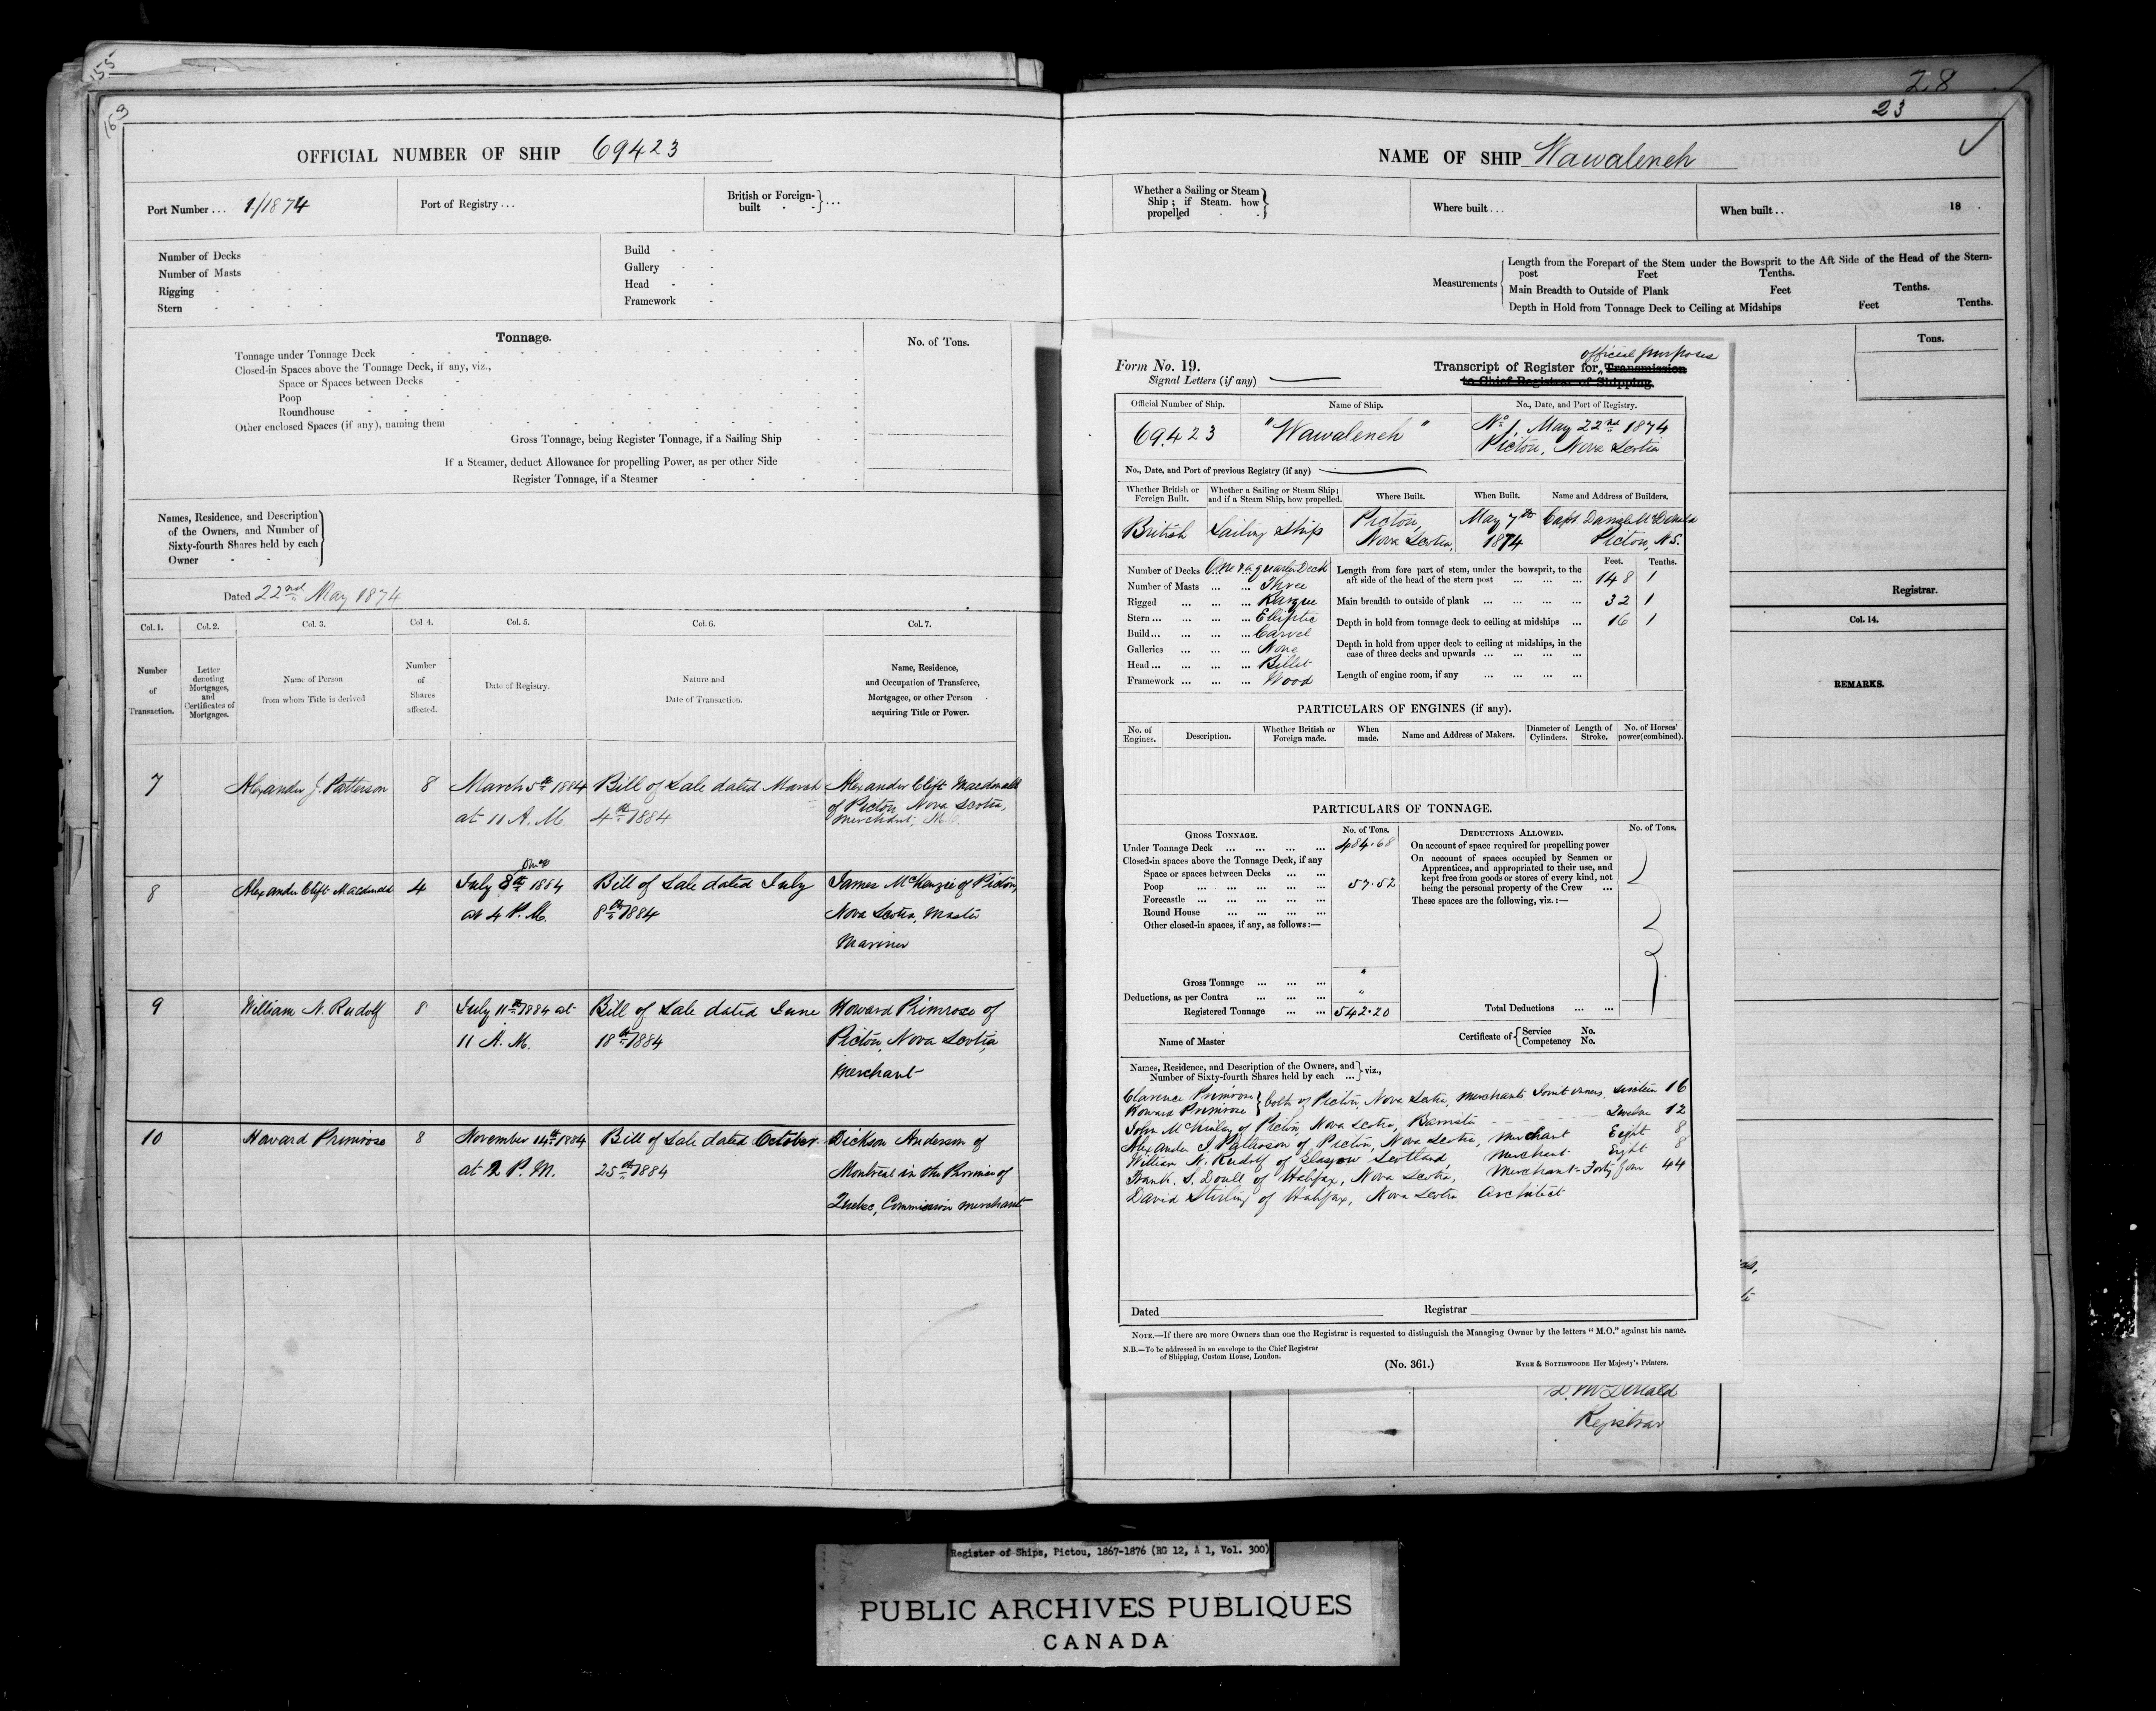 155
163
OFFICIAL NUMBER OF SHIP 69423
Port Number... 1/1874
Port of Registry...
British or Foreign-built - - } ...
Number of Decks
Number of Masts
Rigging - - - -
Stern - - - -
Build - -
Gallery - -
Head - -
Framework -
Tonnage.
No. of Tons.
Tonnage under Tonnage Deck
Closed-in Spaces above the Tonnage Deck, if any, viz.,
Space or Spaces between Decks
Poop
Roundhouse
Other enclosed Spaces (if any), naming them
Gross Tonnage, being Register Tonnage, if a Sailing Ship
If a Steamer, deduct Allowance for propelling Power, as per other Side
Register Tonnage, if a Steamer
Names, Residence, and Description
of the Owners, and Number of
Sixty-fourth Shares held by each
Owner
Dated 22nd May 1874
Col. 1. Col. 2. Col. 3. Col. 4. Col. 5. Col. 6. Col. 7.
Number of Transaction.
Letter denoting Mortgages, and Certificates of Mortgages.
Name of Person from whom Title is derived
Number of Shares affected.
Date of Registry.
Nature and Date of Transaction.
Name, Residence, and Occupation of Transferee, Mortgagee, or other Person acquiring Title or Power.
7 Alexander J. Patterson 8 March 5th 1884 Bill of Sale dated March Alexander Clift Macdonald
at 11 A.M. 4th 1884 of Pictou, Nova Scotia,
Merchant, M.O.
8 Alexander Clift Macdonald 4 July 8th 1884 Bill of Sale dated July James McKenzie of Pictou,
at 4 P.M. 8th 1884 Nova Scotia, Master
Mariner
9 William N. Rudolf 8 July 11th 1884 at Bill of Sale dated June Howard Primrose of
11 A.M. 18th 1884 Pictou, Nova Scotia,
Merchant
10 Howard Primrose 8 November 14th 1884 Bill of Sale dated October Dickson Anderson of
at 2 P.M. 25th 1884 Montreal in the Province of
Quebec, Commission merchant
28
23
NAME OF SHIP Wawaleneh
Whether a Sailing or Steam
Ship; if Steam. how
propelled - -
Where built...
When built.. 18 .
Measurements
Length from the Forepart of the Stem under the Bowsprit to the Aft Side of the Head of the Stern-
post Feet Tenths.
Main Breadth to Outside of Plank Feet Tenths.
Depth in Hold from Tonnage Deck to Ceiling at Midships Feet Tenths.
Tons.
Registrar.
Col. 14.
REMARKS.
Form No. 19.
Signal Letters (if any)
official purposes
Transcript of Register for Transmission
to Chief Registrar of Shipping.
Official Number of Ship. Name of Ship. No., Date, and Port of Registry.
69.423 "Wawaleneh" No 1, May 22nd 1874
Pictou, Nova Scotia
No., Date, and Port of previous Registry (if any)
Whether British or Foreign Built.
Whether a Sailing or Steam Ship; and if a Steam Ship, how propelled.
Where Built. When Built. Name and Address of Builders.
British Sailing Ship Pictou, May 7th Capt. McDonald
Nova Scotia, 1874 Pictou, N.S.
Number of Decks ... One & a quarter Deck
Number of Masts ... ... Three
Rigged ... ... ... Barque
Stern... ... ... ... Elliptic
Build... ... ... ... Carvel
Galleries ... ... ... None
Head... ... ... ... Billet
Framework ... ... ... Wood
Feet. Tenths.
Length from fore part of stem, under the bowsprit, to the
aft side of the head of the stern post ... ... ... 148 1
Main breadth to outside of plank ... ... ... ... 32 1
Depth in hold from tonnage deck to ceiling at midships ... 16 1
Depth in hold from upper deck to ceiling at midships, in the
case of three decks and upwards ... ... ... ...
Length of engine room, if any ... ... ... ...
PARTICULARS OF ENGINES (if any).
No. of Engines. Description. Whether British or Foreign made. When made. Name and Address of Makers. Diameter of Cylinders. Length of Stroke. No. of Horses' power(combined).
PARTICULARS OF TONNAGE.
GROSS TONNAGE. No. of Tons.
Under Tonnage Deck ... ... ... ... 484.68
Closed-in spaces above the Tonnage Deck, if any
Space or spaces between Decks ... ...
Poop ... ... ... ... ... 57.52
Forecastle ... ... ... ... ...
Round House ... ... ... ...
Other closed-in spaces, if any, as follows:—
Gross Tonnage ... ... ... "
Deductions, as per Contra ... ... ... "
Registered Tonnage ... ... ... 542.20
DEDUCTIONS ALLOWED. No. of Tons.
On account of space required for propelling power
On account of spaces occupied by Seamen or
Apprentices, and appropriated to their use, and
kept free from goods or stores of every kind, not
being the personal property of the Crew ...
These spaces are the following, viz.:—
Total Deductions ... ...
Name of Master
Certificate of { Service No.
Competency No.
Names, Residence, and Description of the Owners, and
Number of Sixty-fourth Shares held by each ... } viz.,
Clarence Primrose
Howard Primrose } both of Pictou, Nova Scotia, Merchants Joint owners, sixteen 16
John McKinlay of Pictou, Nova Scotia, Barrister Twelve 12
Alexander J. Patterson of Pictou, Nova Scotia, Merchant Eight 8
William N. Rudolf of Glasgow Scotland, Merchant Eight 8
Frank. S. Doull of Halifax, Nova Scotia, Merchant - Forty four 44
David Stirling of Halifax, Nova Scotia Architect
Dated Registrar
NOTE.—If there are more Owners than one the Registrar is requested to distinguish the Managing Owner by the letters "M.O." against his name.
N.B.—To be addressed in an envelope to the Chief Registrar
of Shipping, Custom House, London.
(No. 361.)
EYRE & SOTTISWOODE Her Majesty's Printers.
D. McDonald
Registrar
Register of Ships, Pictou, 1867-1876 (RG 12, A 1, Vol. 300)
PUBLIC ARCHIVES PUBLIQUES
CANADA